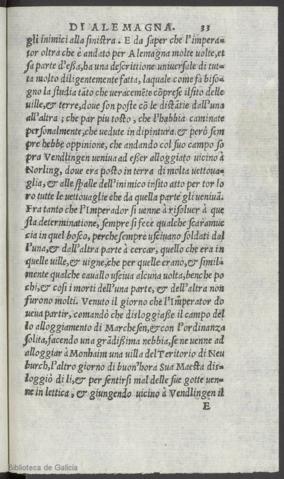 DI ALEMAGNA. 33
gli inimici alla sinistra. E da saper che l'impera=
tor oltra che è andato per Alemagna molte volte, et
sa parte d'essa, ha una descrittione universale di tut=
ta molto diligentemente fatta, laquale come fa biso=
gno la studia tãto che veracemẽte cõprese il sito delle
ville, & terre, dove son poste cõ le distãtie dall'una
all'altra; che par piu tosto, che l'habbia caminate
personalmente, che vedute in dipintura & però sem
pre hebbe oppinione, che andando col suo campo so
pra Vendlingen veniua ad esser alloggiato vicino à
Norling, dove era posto in terra di molta vettoua=
glia, & alle spalle dell'inimico in sito atto per tor lo
ro tutte le vettouaglie che da quella parte gli veniuã.
Fra tanto che l'Imperador si uenne à risoluer à que
sta determinatione, sempre si fece qualche scaramuc
cia in quel bosco, perche sempre usciuano soldati dal
l'una, & dall'altra parte à cercar, quello che era in
quelle uille, & uigne, che per quelle erano, & simil=
mente qualche cauallo usciua alcuna volta, benche po
chi, & cosi i morti dell'una parte, & dell'altra non
furono molti. Venuto il giorno che l'Imperator do
ueua partir, comandò che disloggiasse il campo del
lo alloggiamento di Marchesen, & con l'ordinanza
solita, facendo una grãdissima nebbia, se ne uenne ad
alloggiar à Monhaim una uilla del Teritorio di Neu
burch, l'altro giorno di buon'hora Sua Maesta dis=
loggiò di li, & per sentirsi mal delle sue gotte uen=
ne in lettica, & giungendo uicino à Vendlingen il
E
Biblioteca de Galicia